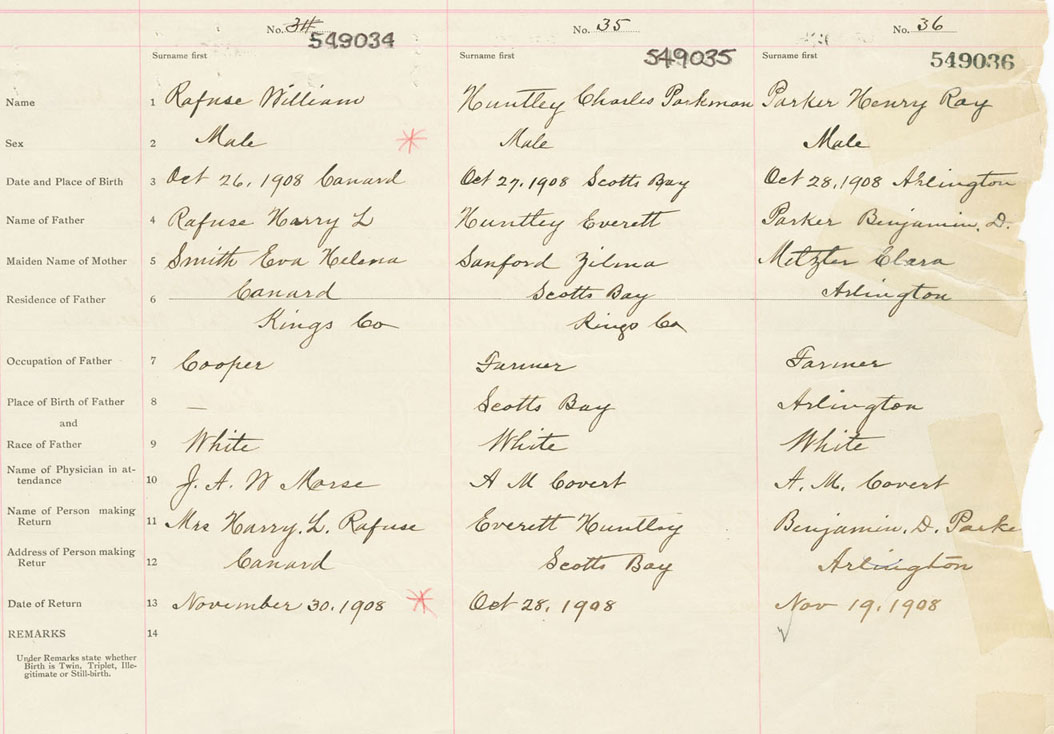 No. 34 No. 35 No. 36
549034 549035 549036
Surname first Surname first Surname first
Name 1 Rafuse William Huntley Charles Parkman Parker Henry Ray
Sex 2 Male Male Male
Date and Place of Birth 3 Oct 26, 1908 Canard Oct 27, 1908 Scotts Bay Oct 28, 1908 Arlington
Name of Father 4 Rafuse Harry L Huntley Everett Parker Benjamin, D.
Maiden Name of Mother 5 Smith Eva Helena Sanford Zilma Metzler Clara
Residence of Father 6 Canard Scotts Bay Arlington
Kings Co Kings Co
Occupation of Father 7 Cooper Farmer Farmer
Place of Birth of Father 8 — Scotts Bay Arlington
and
Race of Father 9 White White White
Name of Physician in at-
tendance 10 J. A. W Morse A M Covert A. M. Covert
Name of Person making
Return 11 Mrs Harry. L. Rafuse Everett Huntley Benjamin. D. Parke
Address of Person making
Retur 12 Canard Scotts Bay Arlington
Date of Return 13 November 30, 1908 Oct 28, 1908 Nov 19, 1908
REMARKS 14
Under Remarks state whether
Birth is Twin, Triplet, Ille-
gitimate or Still-birth.